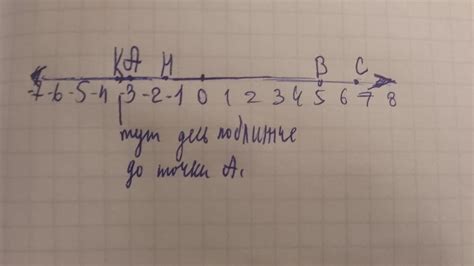 КА М В С
-7 -6 -5 -4 -3 -2 -1 0 1 2 3 4 5 6 7 8
тут десь поближче
до точки А.